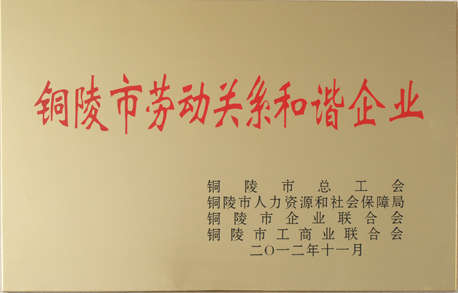 铜陵市劳动关系和谐企业
铜陵市总工会
铜陵市人力资源和社会保障局
铜陵市企业联合会
铜陵市工商业联合会
二〇一二年十一月